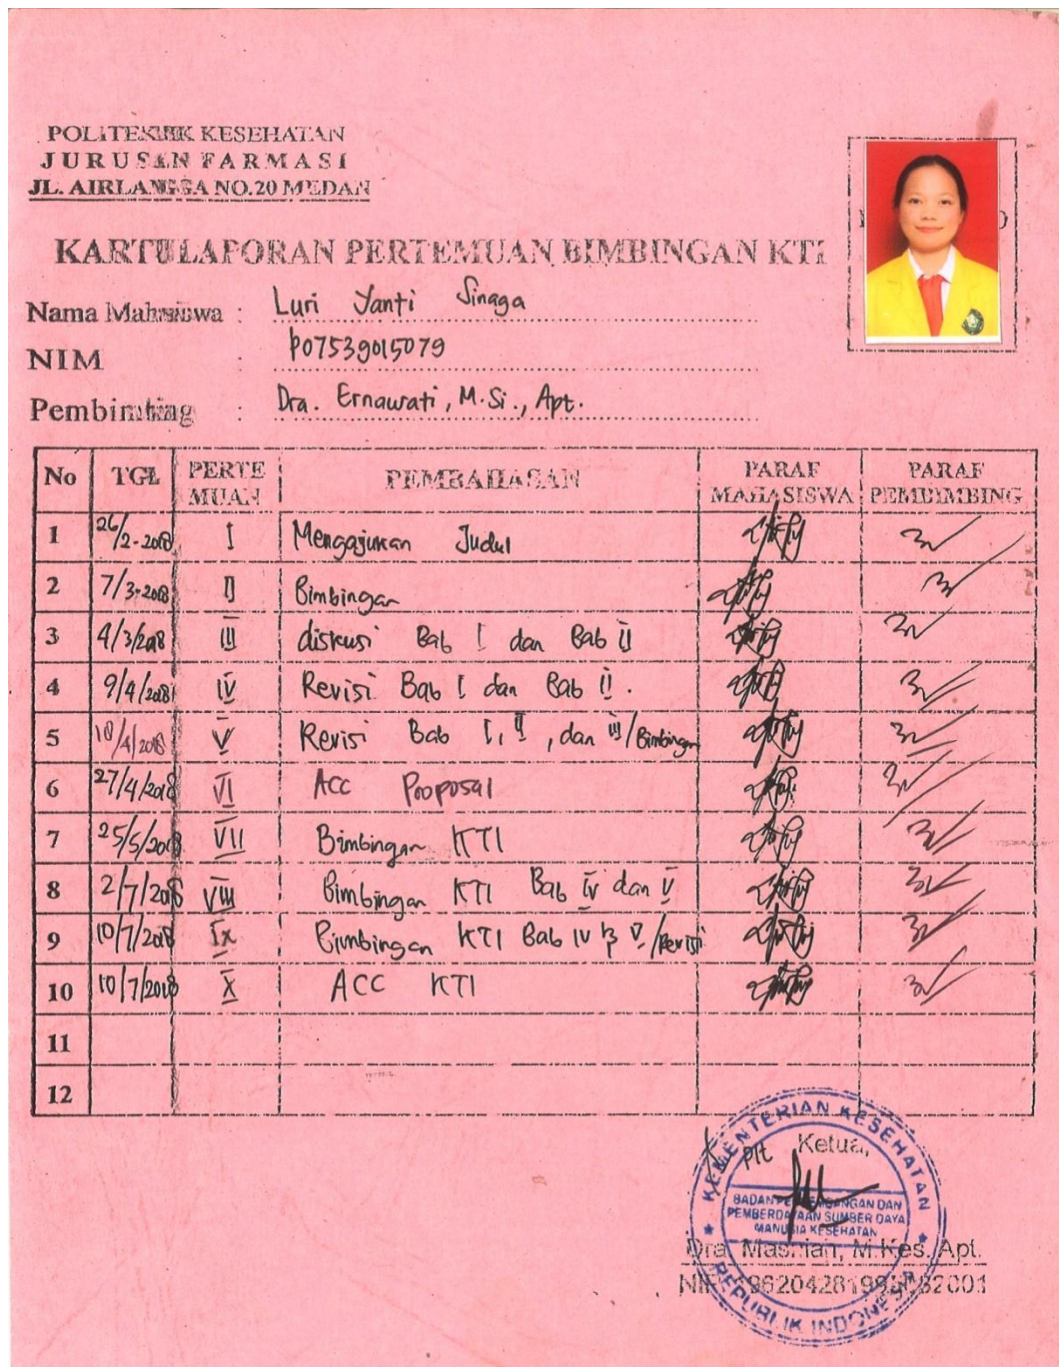 POLITEKNIK KESEHATAN
JURUSAN FARMASI
JL. AIRLANGGA NO.20 MEDAN
KARTU LAPORAN PERTEMUAN BIMBINGAN KTI
Nama Mahasiswa : Luri Yanti Sinaga
NIM : P07539015079
Pembimbing : Dra. Ernawati, M.Si., Apt.
No TGL PERTE MUAN PEMBAHASAN PARAF MAHASISWA PARAF PEMBIMBING
1 26/2-2018 I Mengajukan Judul
2 7/3-2018 II Bimbingan
3 4/3/2018 III diskusi Bab I dan Bab II
4 9/4/2018 IV Revisi Bab I dan Bab II.
5 10/4/2018 V Revisi Bab I, II, dan III/Bimbingan
6 27/4/2018 VI ACC Proposal
7 25/5/2018 VII Bimbingan KTI
8 2/7/2018 VIII Bimbingan KTI Bab IV dan V
9 10/7/2018 IX Bimbingan KTI Bab IV & V/Revisi
10 10/7/2018 X ACC KTI
11
12
KEMENTERIAN KESEHATAN
Plt Ketua,
BADAN PENGEMBANGAN DAN
PEMBERDAYAAN SUMBER DAYA
MANUSIA KESEHATAN
Dra. Masniah, M.Kes, Apt.
NIP.
REPUBLIK INDONESIA